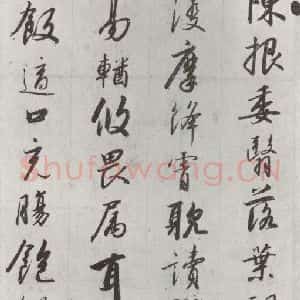 陳根委翳落葉
凌摩絳霄耽讀
易輶攸畏属耳
飯適口充腸飽
Shufawang.CN